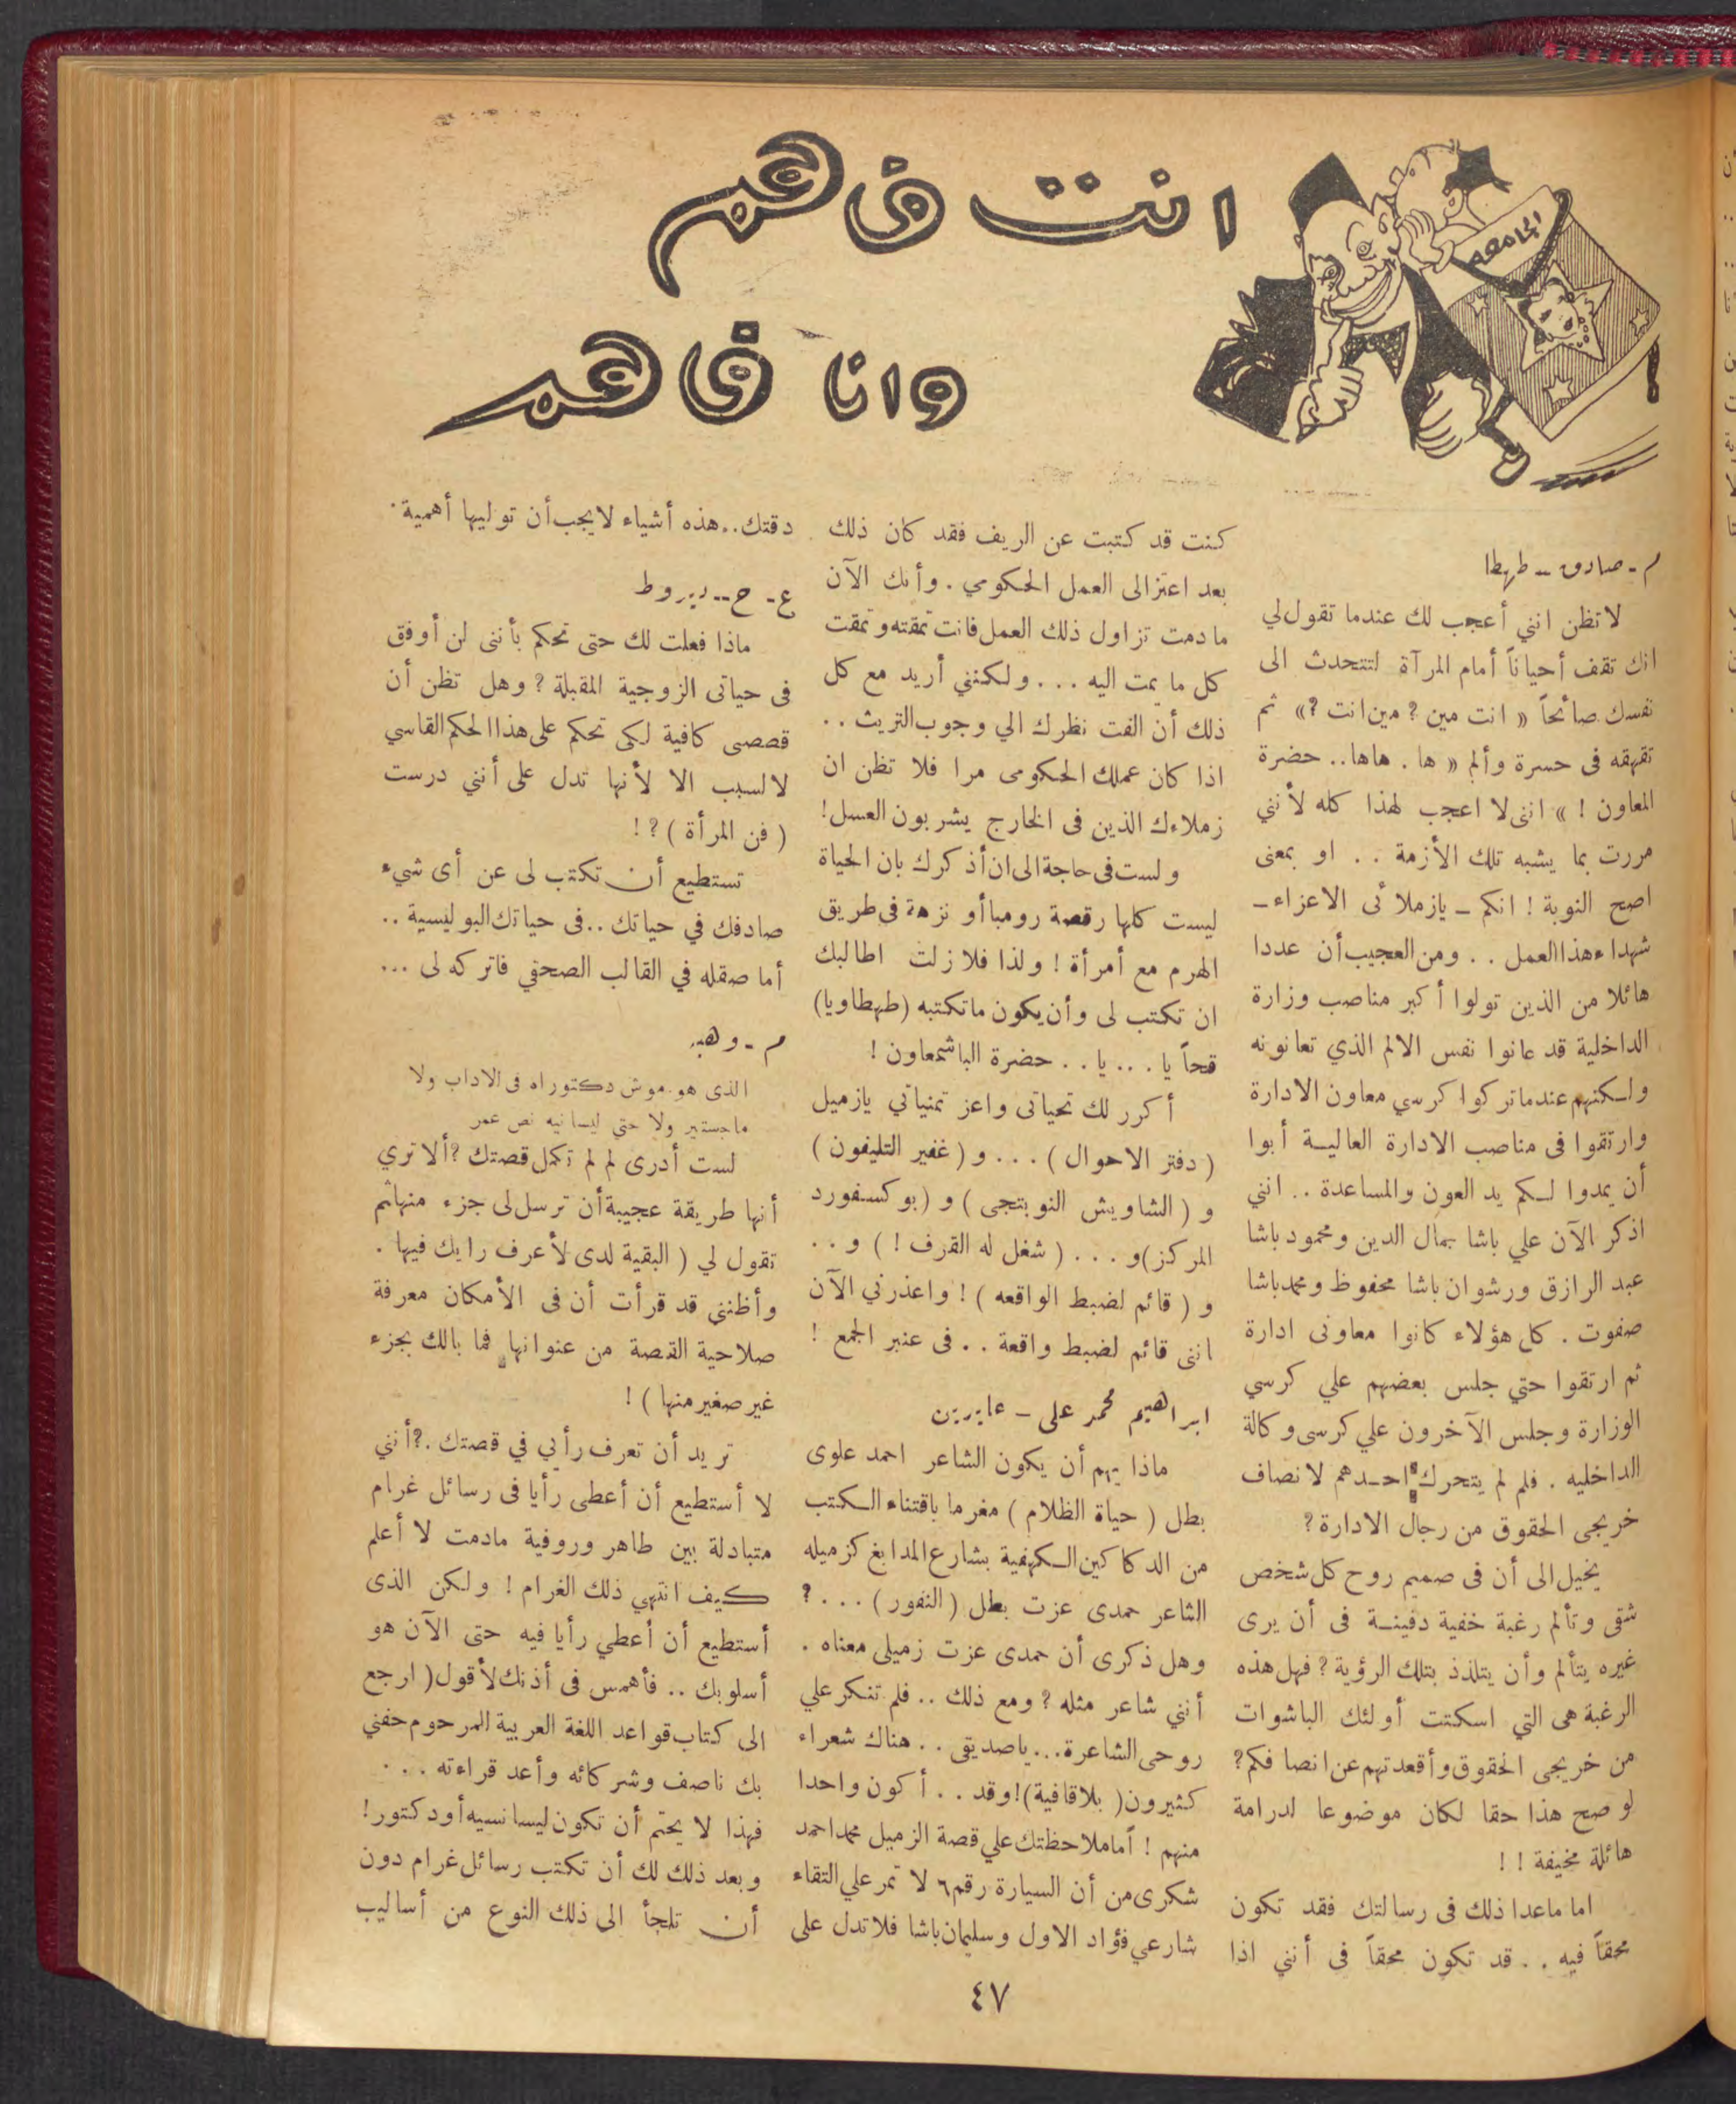 انت فاهم
وانا فاهم
الجامعه
م - صادق - طهطا
لا تظن انني أعجب لك عندما تقول لي
انك تقف أحياناً أمام المرآة لتتحدث الى
نفسك صائحاً « انت مين ? مين انت ?» ثم
تقهقه فى حسرة وألم « ها . هاها.. حضرة
المعاون ! » اننى لا اعجب لهذا كله لأنني
مررت بما يشبه تلك الأزمة . . او بمعنى
اصح النوبة ! انكم ــ يازملائى الاعزاء ــ
شهداء هذا العمل . . ومن العجيب أن عددا
هائلا من الذين تولوا أكبر مناصب وزارة
الداخلية قد عانوا نفس الالم الذي تعانونه
ولكنهم عندما تركوا كرسي معاون الادارة
وارتقوا فى مناصب الادارة العالية أبوا
أن يمدوا لكم يد العون والمساعدة .. انني
اذكر الآن علي باشا جمال الدين ومحمود باشا
عبد الرازق ورشوان باشا محفوظ ومحمد باشا
صفوت . كل هؤلاء كانوا معاونى ادارة
ثم ارتقوا حتي جلس بعضهم علي كرسي
الوزارة وجلس الآخرون علي كرسى وكالة
الداخليه . فلم لم يتحرك احدهم لانصاف
خريجى الحقوق من رجال الادارة ?
يخيل الى أن فى صميم روح كل شخص
شقى وتألم رغبة خفية دفينة فى أن يرى
غيره يتألم وأن يتلذذ بتلك الرؤية ? فهل هذه
الرغبة هى التي اسكتت أولئك الباشوات
من خريجى الحقوق وأقعدتهم عن انصافكم?
لو صح هذا حقا لكان موضوعا لدرامة
هائلة مخيفة ! !
اما ماعدا ذلك فى رسالتك فقد تكون
محقاً فيه . . قد تكون محقاً فى أنني اذا
كنت قد كتبت عن الريف فقد كان ذلك
بعد اعتزالى العمل الحكومي . وأنك الآن
مادمت تزاول ذلك العمل فانت تمقته وتمقت
كل ما يمت اليه ... ولكنني أريد مع كل
ذلك أن الفت نظرك الي وجوب التريث ..
اذا كان عملك الحكومى مرا فلا تظن ان
زملاءك الذين فى الخارج يشربون العسل!
ولست فى حاجة الى ان أذكرك بان الحياة
ليست كلها رقصة رومبا أو نزهة فى طريق
الهرم مع أمرأة ! ولذا فلا زلت اطالبك
ان تكتب لى وأن يكون ماتكتبه (طهطاويا)
قحاً يا . .. يا . . حضرة الباشمعاون !
أكرر لك تحياتى واعز تمنياتي يازميل
( دفتر الاحوال ) ... و ( غفير التليفون )
و ( الشاويش النوبتجى ) و ( بوكسفورد
المركز) و . . . ( شغل له القرف ! ) و . .
و ( قائم لضبط الواقعه ) ! واعذرني الآن
اننى قائم لضبط واقعة . . فى عنبر الجمع !
ابراهيم محمد على - عابدين
ماذا يهم أن يكون الشاعر احمد علوى
بطل ( حياة الظلام ) مغرما باقتناء الكتب
من الدكاكين الكهفية بشارع المدابغ كزميله
الشاعر حمدى عزت بطل ( النفور ) . . . ?
وهل ذكرى أن حمدى عزت زميلى معناه .
أنني شاعر مثله ? ومع ذلك .. فلم تنكر علي
روحى الشاعرة... ياصديقى . . هناك شعراء
كثيرون ( بلا قافية)! وقد . . أكون واحدا
منهم ! أما ملاحظتك علي قصة الزميل محمد احمد
شكرى من أن السيارة رقم ٦ لا تمر علي التقاء
شارعي فؤاد الاول وسليمان باشا فلا تدل على
دقتك.. هذه أشياء لايجب أن توليها أهمية .
ع - ح -- ديروط
ماذا فعلت لك حتى تحكم بأننى لن أوفق
فى حياتى الزوجية المقبلة ? وهل تظن أن
قصصى كافية لكى تحكم على هذا الحكم القاسي
لا لسبب الا لأنها تدل على أنني درست
( فن المرأة ) ? !
تستطيع أن تكتب لى عن أى شيء
صادفك في حياتك .. فى حياتك البوليسية ..
أما صقله في القالب الصحفي فاتركه لى ...
م - وهبه
الذى هو. موش دكتوراه فى الاداب ولا
ماجستير ولا حتي ليسانيه نص عمر
لست أدرى لم لم تكمل قصتك ? ألا تري
أنها طريقة عجيبة أن ترسل لى جزء منها ثم
تقول لي ( البقية لدى لأعرف رايك فيها .
وأظنني قد قرأت أن فى الأمكان معرفة
صلاحية القصة من عنوانها فما بالك بجزء
غير صغير منها ) !
تريد أن تعرف رأيي في قصتك .? أنني
لا أستطيع أن أعطى رأيا فى رسائل غرام
متبادلة بين طاهر وروفية مادمت لا أعلم
كيف انتهي ذلك الغرام ! ولكن الذى
أستطيع أن أعطي رأيا فيه حتى الآن هو
أسلوبك .. فأهمس فى أذنك لأقول ( ارجع
الى كتاب قواعد اللغة العربية المرحوم حفني
بك ناصف وشركائه وأعد قراءته . . .
فهذا لا يحتم أن تكون ليسانسيه أودكتور !
وبعد ذلك لك أن تكتب رسائل غرام دون
أن تلجأ الى ذلك النوع من أساليب
٤٧